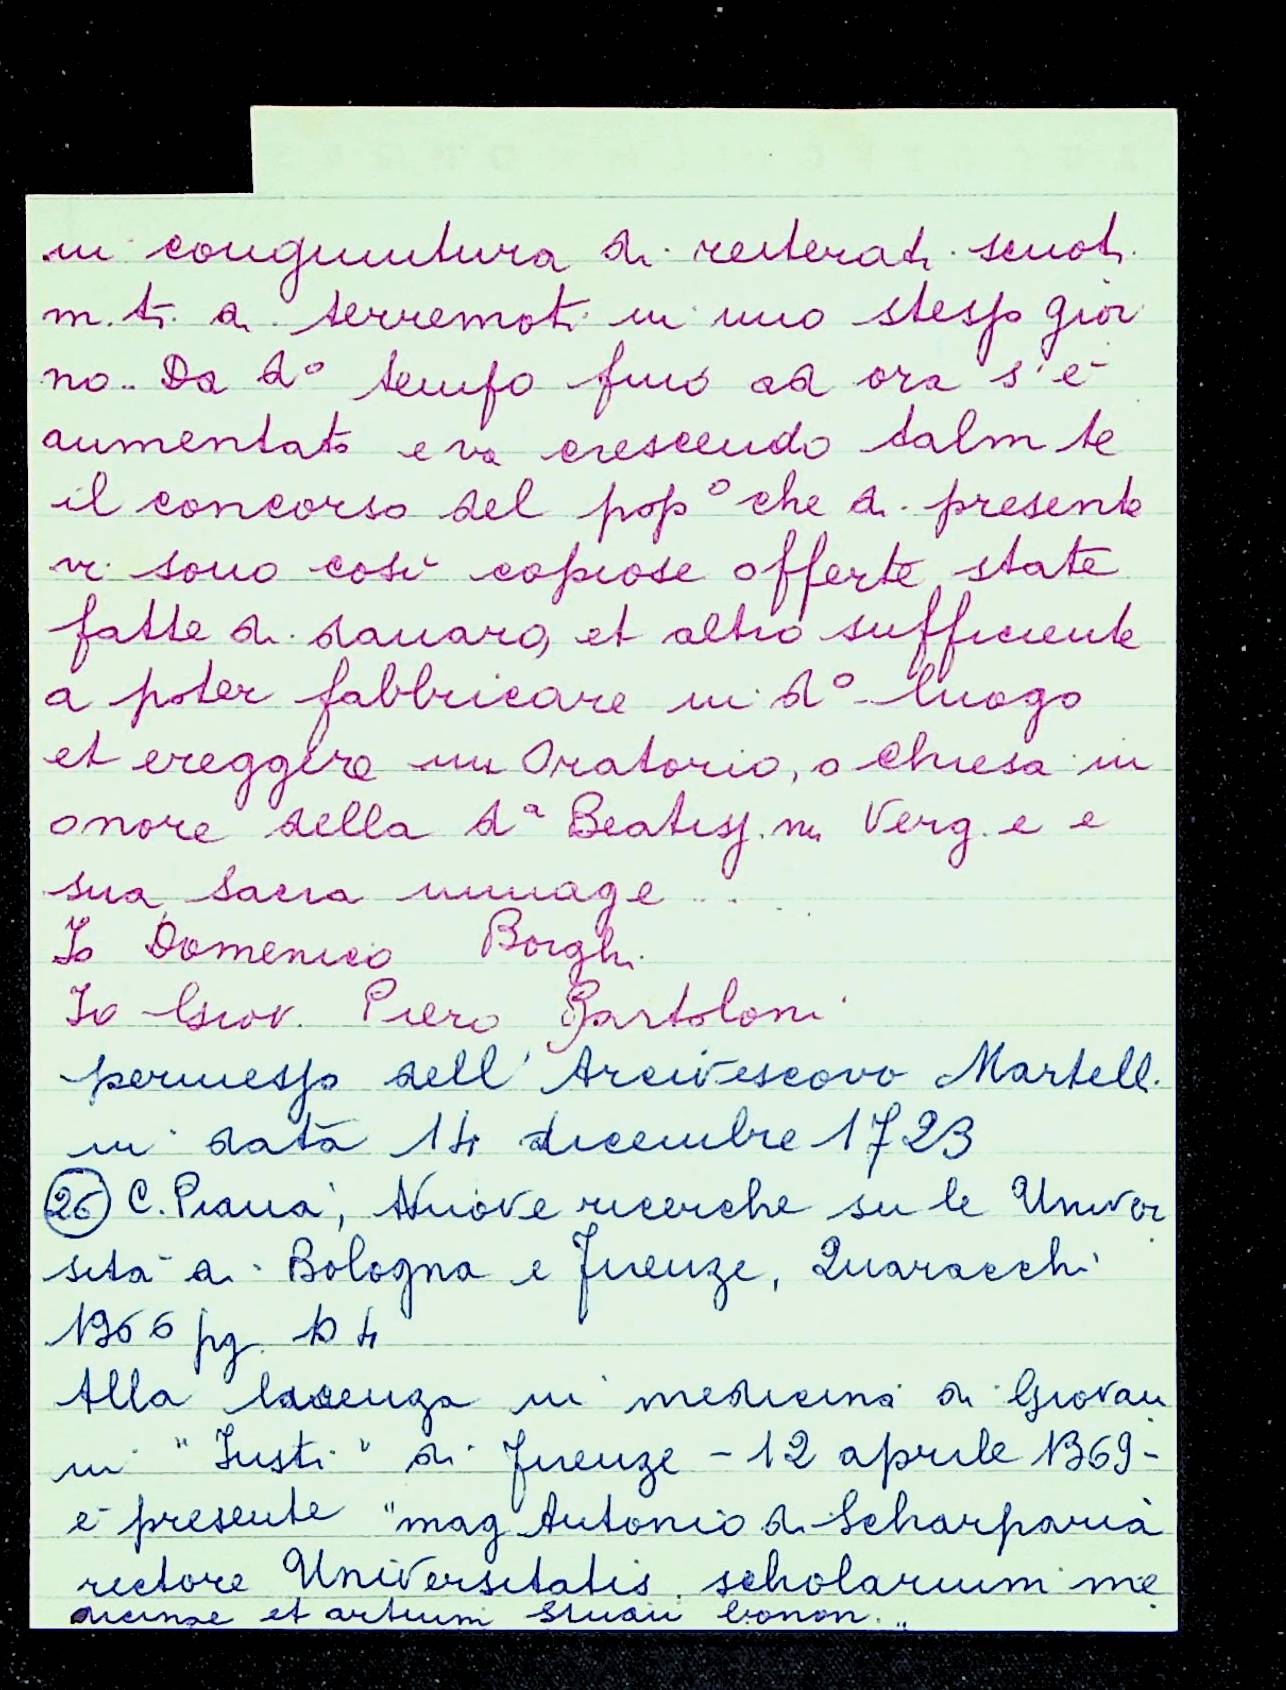 in congiuntura di reiterati scuoti
m.ti di terremoti in uno stesso gior
no.. Da dº tempo fino ad ora s'è
aumentato e va crescendo talm te
il concorso del popº che di presente
vi sono così copiose offerte state
fatte di danaro, et altro sufficiente
a poter fabbricare in dº luogo
et ereggere un Oratorio, o Chiesa in
onore della dª Beatiss.ma Verg.e e
sua sacra image ...
Io Domenico Borghi
Io Giov. Piero Bartoloni
permesso dell'Arcivescovo Martelli
in data 14 dicembre 1723
26 C. Piana, Nuove ricerche su le Univer
sità di Bologna e Firenze, Quaracchi
1966 pg.
Alla licenza in medicina di Giovan
ni "Iusti" di Firenze - 12 aprile 1369 -
è presente "mag Antonio di Scharparia
rectore Universitatis scholarium me
dicinae et artium Studii bonon."